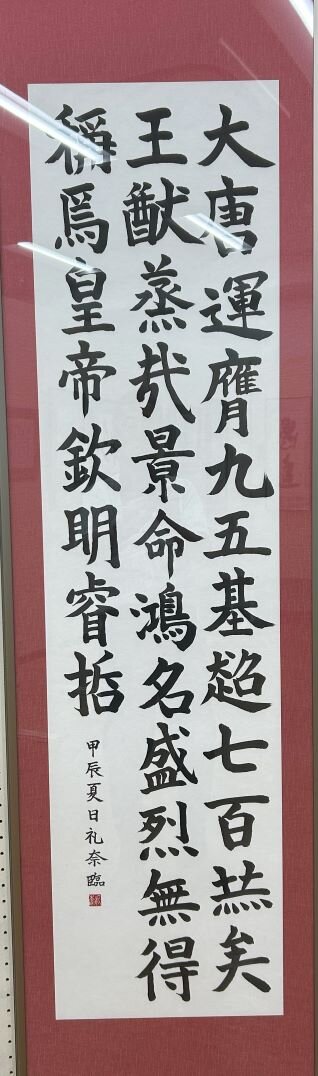 大唐運膺九五基超七百赫矣
王猷蒸哉景命鴻名盛烈無得
稱焉皇帝欽明睿哲
甲辰夏日礼奈臨